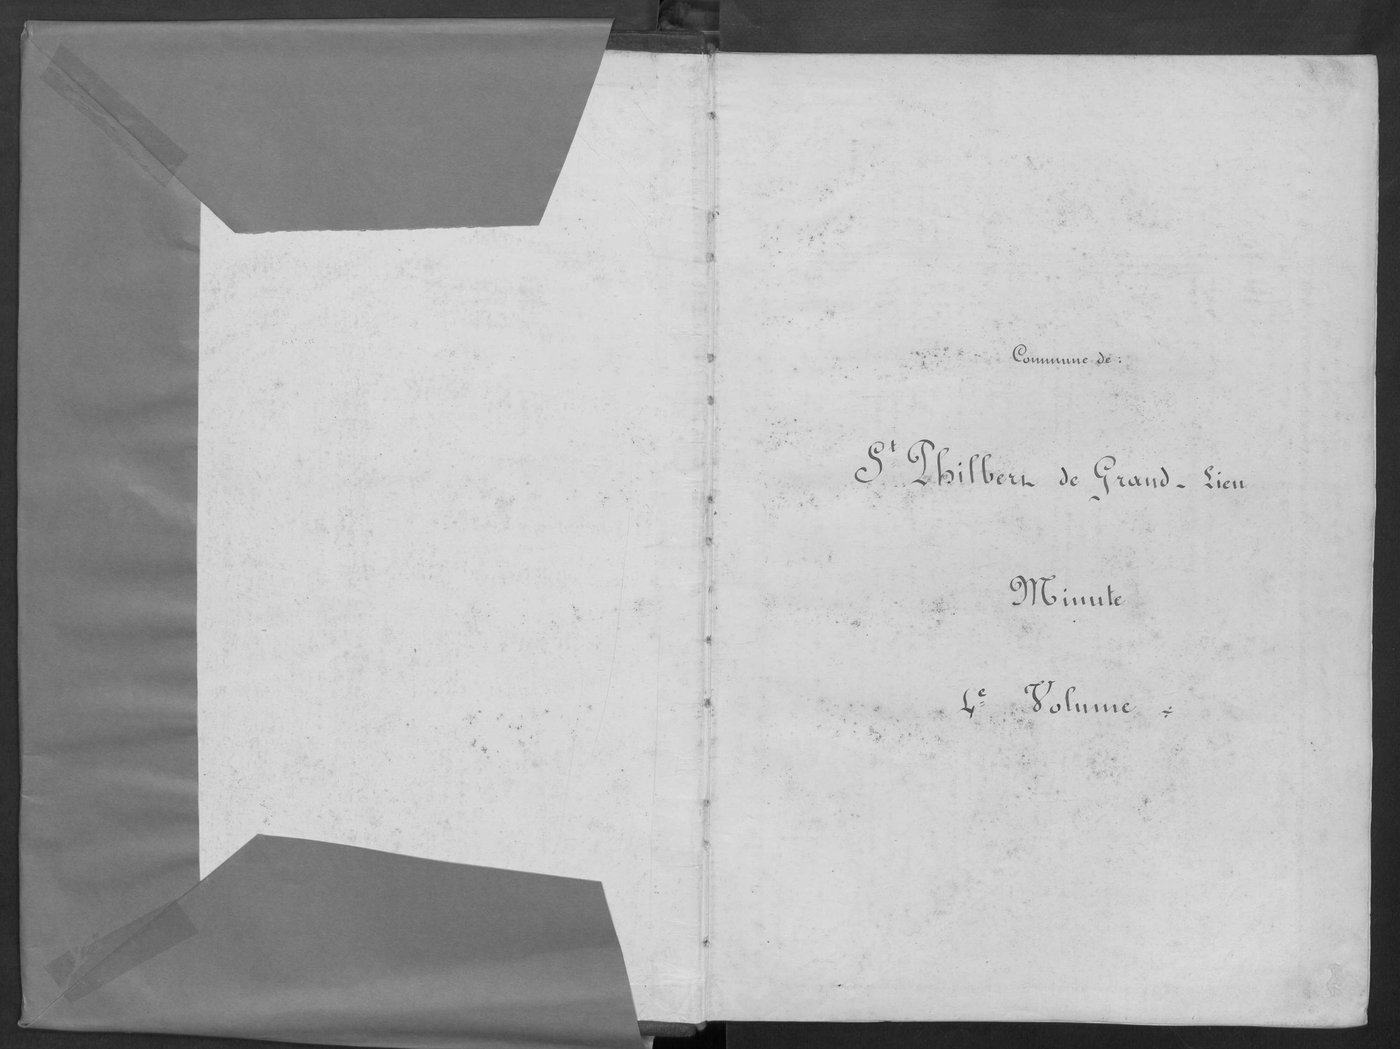 Commune de :
St Philbert de Grand-Lieu
Minute
4e Volume